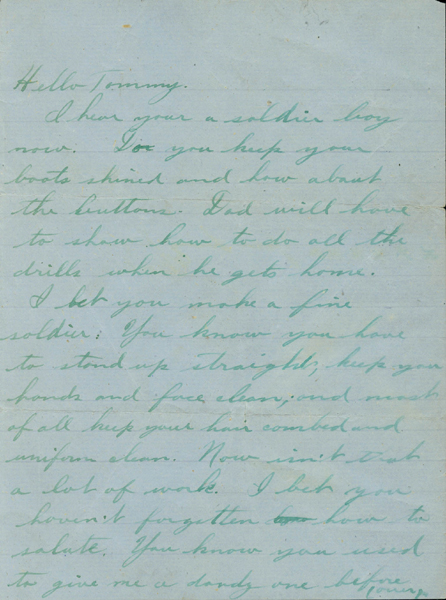 Hello Tommy.
I hear your a soldier boy
now. Do you keep your
boots shined and how about
the buttons. Dad will have
to show how to do all the
drills when he gets home.
I bet you make a fine
soldier. You know you have
to stand up straight, keep your
hands and face clean, and most
of all keep your hair combed and
uniform clean. Now isn't that
a lot of work. I bet you
haven't forgotten how to
salute. You know you used
to give me a dandy one before
(over)